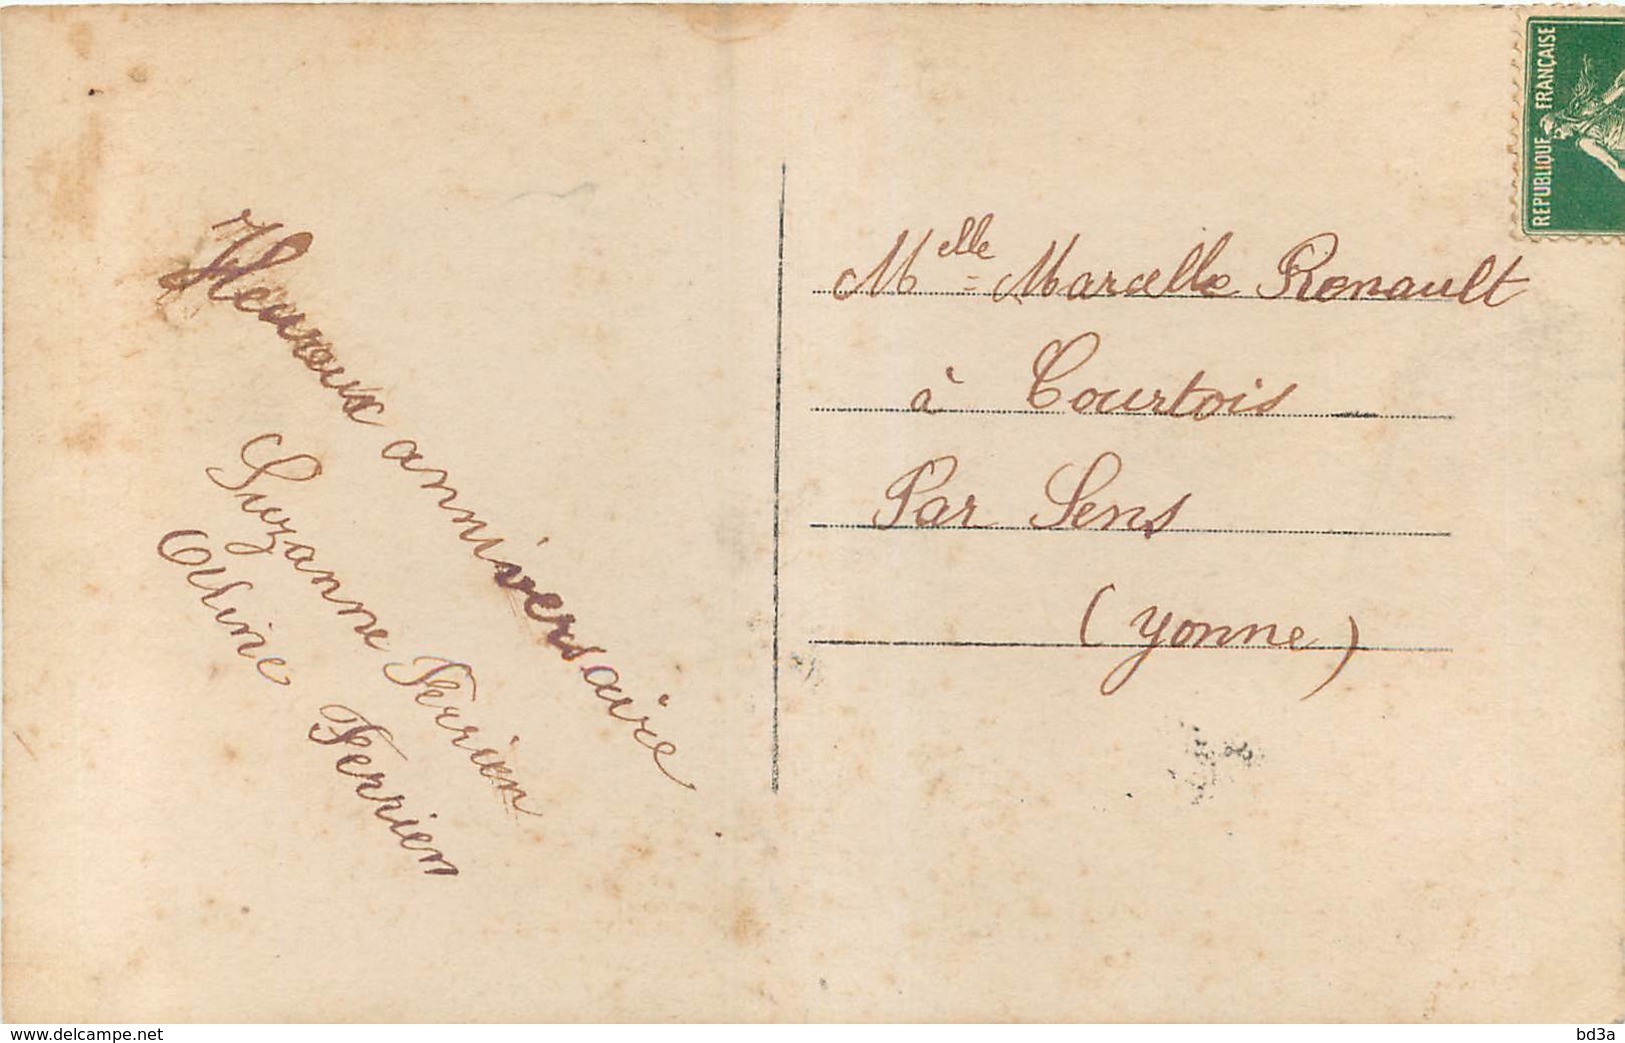 Heureux anniversaire
Suzanne Ferrien
Aline Ferrien
Melle Marcelle Renault
à Courtois
Par Sens
(Yonne)
REPUBLIQUE FRANÇAISE
www.delcampe.net
bd3a